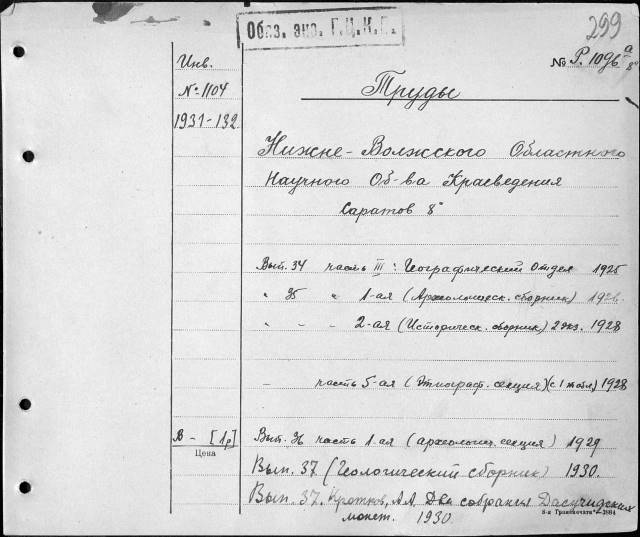 Обяз. экз. Г.Ц.К.П.
299
Инв.
№ 1104
1931-132
№ Р. 1096 а/8°
Труды
Нижне-Волжского Областного
Научного Об-ва Краеведения
Саратов 8°
Вып. 34 часть III: Географический Отдел 1925
" 35 " 1-ая (Археологическ. сборник) 1926.
" - - 2-ая (Историческ. сборник) 2 экз. 1928
- часть 5-ая (Этнограф. секция) (с 1 табл) 1928
В - [1р]
Цена
Вып. 36 часть 1-ая (археологич. секция) 1929
Вып. 37 (Геологический сборник) 1930.
Вып. 37. Кротков, А.А. Два собрания Джучидских
монет. 1930.